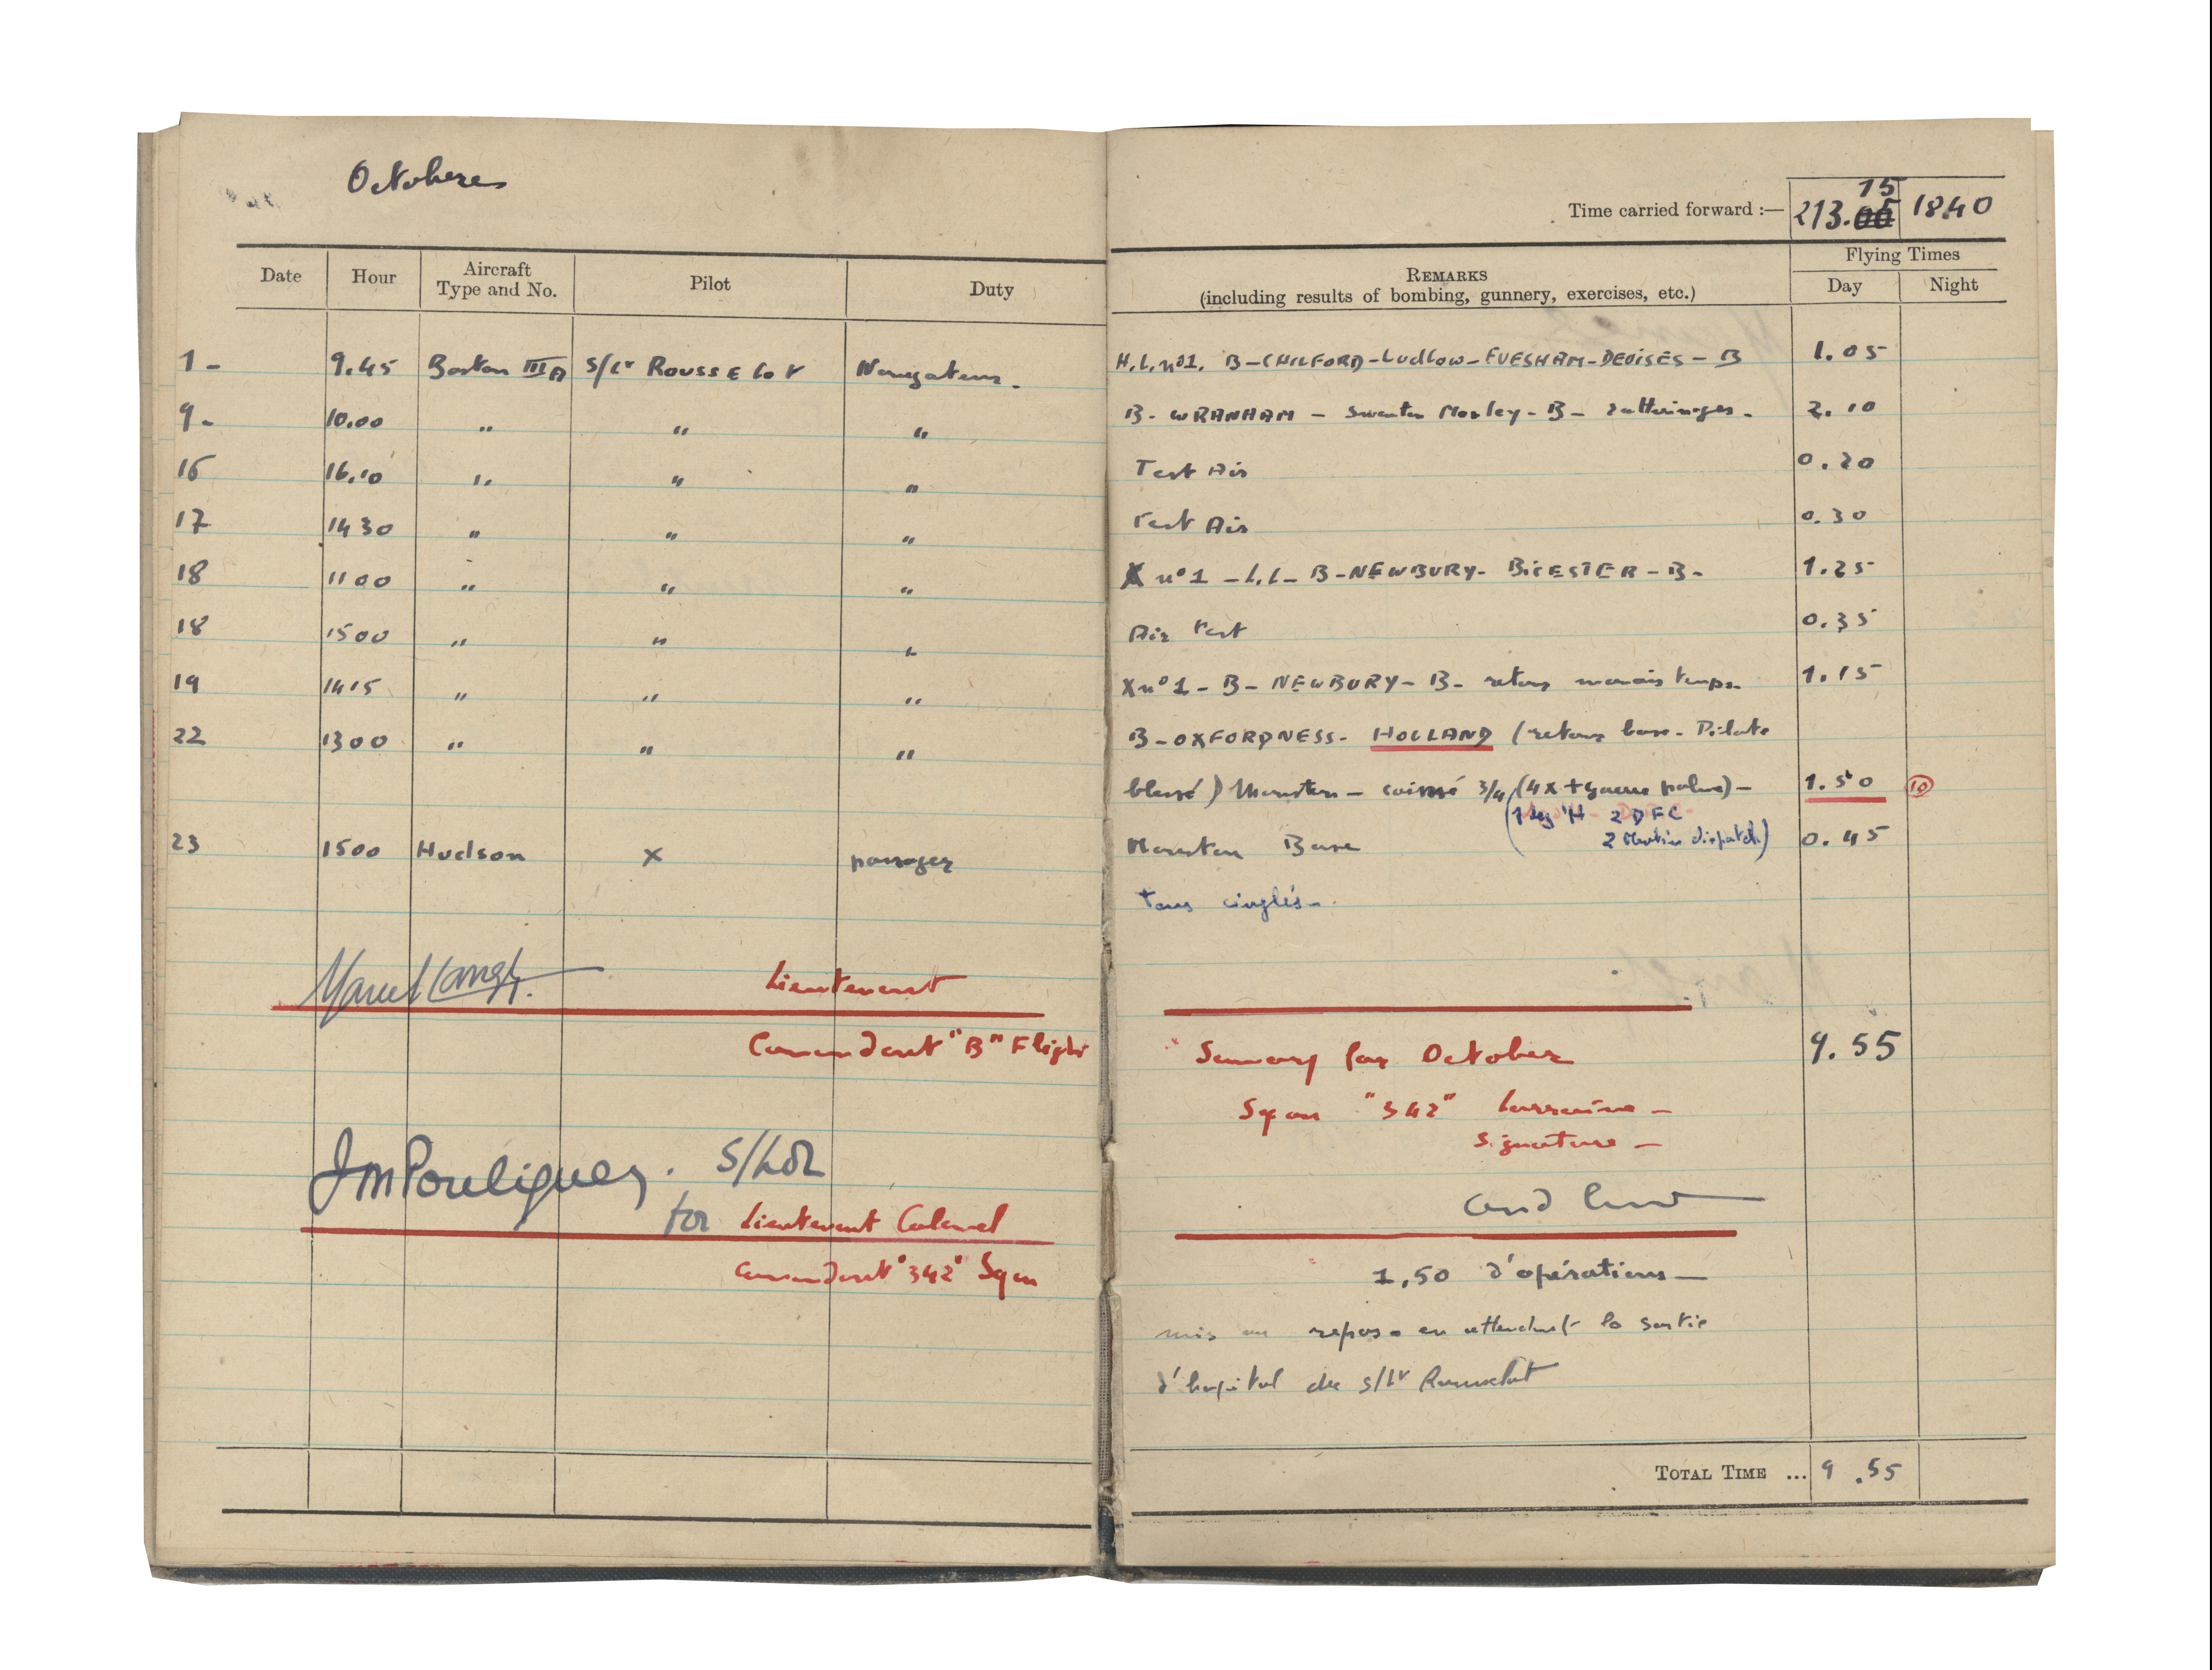 Octobere
Time carried forward :— 213.00 15 1840
Date Hour Aircraft Type and No. Pilot Duty REMARKS (including results of bombing, gunnery, exercises, etc.) Flying Times Day Night
1 - 9.45 Boston III A S/Lt ROUSSELOT Navigateur. H.L. n°1. B-CHILFORD-Ludlow-EVESHAM-DEVISES-B 1.05
9 - 10.00 " " " B-WRANHAM - Swenton Morley-B- 2.10
16 16.10 " " " Test Air 0.20
17 1430 " " " Test Air 0.30
18 1100 " " " X n°1 - L.L- B-NEWBURY- BICESTER-B- 1.25
18 1500 " " " Air Test 0.35
19 1415 " " " X n°1 - B- NEWBURY- B- retour mauvais temps. 1.15
22 1300 " " " B-OXFORDNESS- HOLLAND (retour base. Pilote
blessé) Manston - 3/4 (4x + palme) - 1.50 10
(1 Leg 'H - 2 DFC
2 dispatch)
23 1500 Hudson X passager Manston Base 0.45
tous cinglés.
Marcel Langer. Lieutenant
Comandant "B" Flight
Sumary for October 9.55
Sqon "342" Lorraine -
Signature -
JM Pouliguen. S/Ldr
for Lieutenant Colonel
Comandant "342" Sqon
1,50 d'opérations -
mis au repos. en attendant la sortie
d'hopital du S/Lt Rousselot
TOTAL TIME ... 9.55